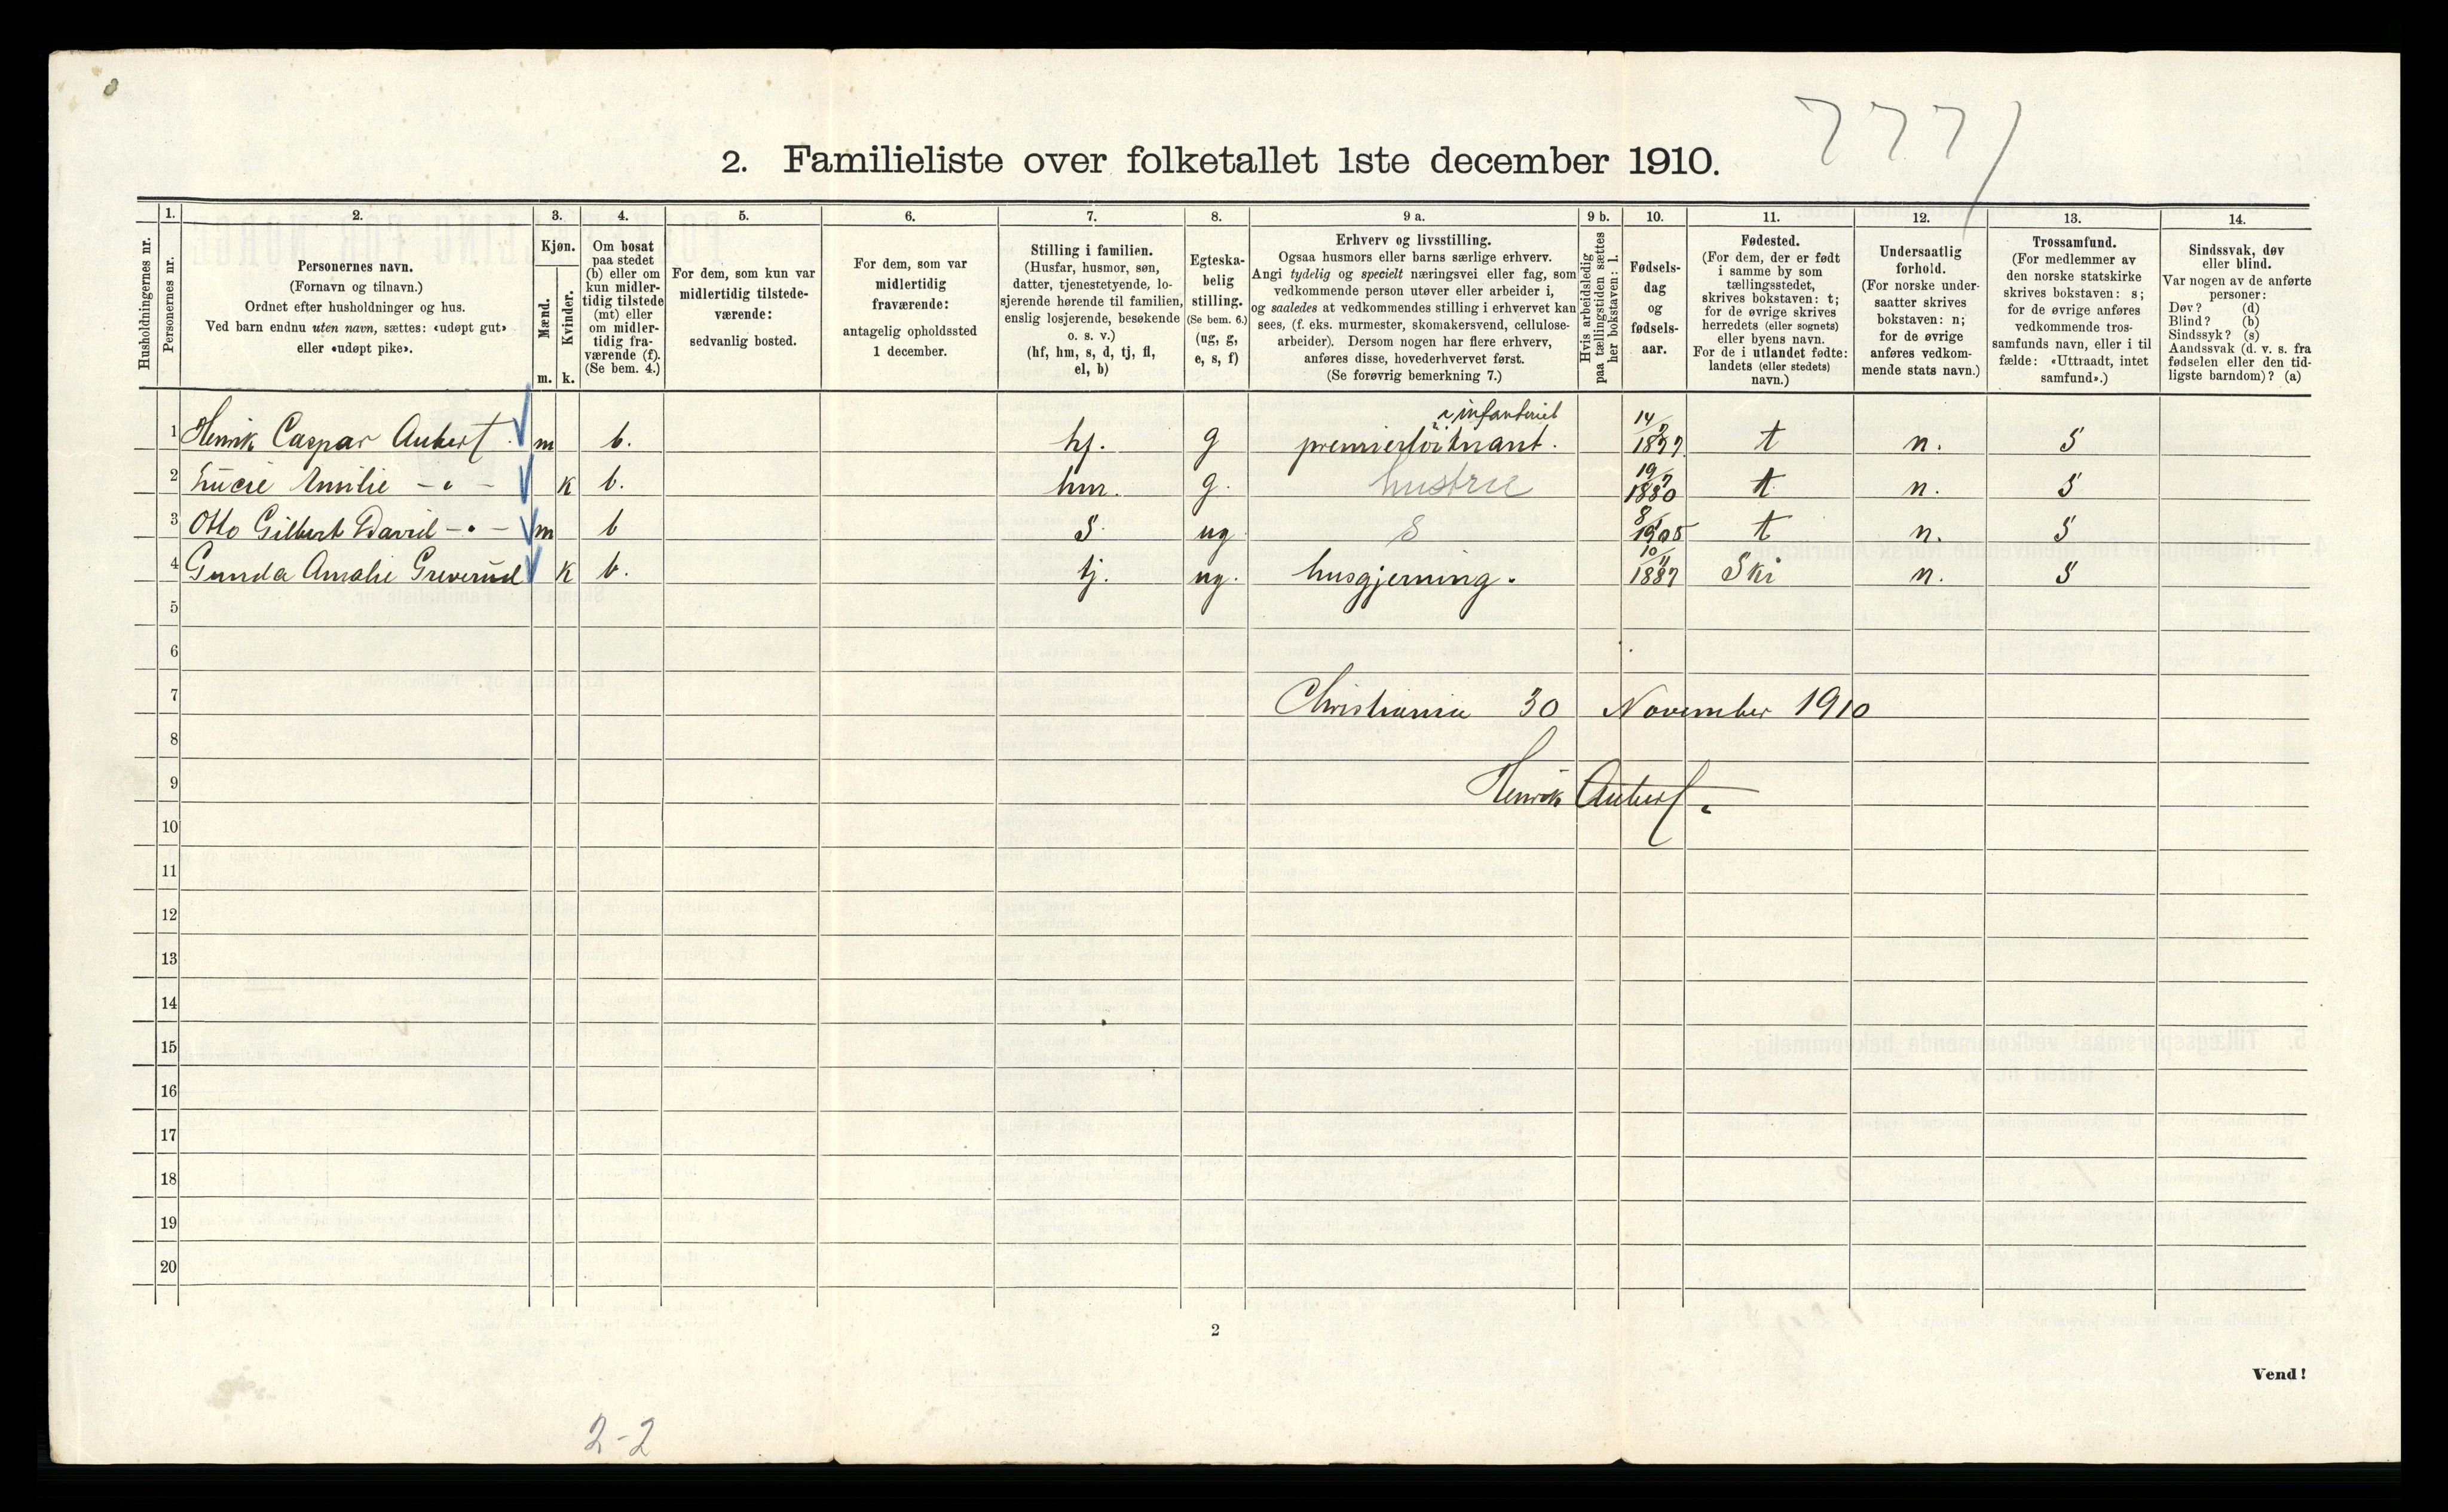 7771
2. Familieliste over folketallet 1ste december 1910.
Husholdningernes nr.
1.
Personernes nr.
2.
Personernes navn.
(Fornavn og tilnavn.)
Ordnet efter husholdninger og hus.
Ved barn endnu uten navn, sættes: «udøpt gut»
eller «udøpt pike».
3.
Kjøn.
Mænd.
Kvinder.
m. k.
4.
Om bosat
paa stedet
(b) eller om
kun midler-
tidig tilstede
(mt) eller
om midler-
tidig fra-
værende (f).
(Se bem. 4.)
5.
For dem, som kun var
midlertidig tilstede-
værende:
sedvanlig bosted.
6.
For dem, som var
midlertidig
fraværende:
antagelig opholdssted
1 december.
7.
Stilling i familien.
(Husfar, husmor, søn,
datter, tjenestetyende, lo-
sjerende hørende til familien,
enslig losjerende, besøkende
o. s. v.)
(hf, hm, s, d, tj, fl,
el, b)
8.
Egteska-
belig
stilling.
(Se bem. 6.)
(ug, g,
e, s, f)
9 a.
Erhverv og livsstilling.
Ogsaa husmors eller barns særlige erhverv.
Angi tydelig og specielt næringsvei eller fag, som
vedkommende person utøver eller arbeider i,
og saaledes at vedkommendes stilling i erhvervet kan
sees, (f. eks. murmester, skomakersvend, cellulose-
arbeider). Dersom nogen har flere erhverv,
anføres disse, hovederhvervet først.
(Se forøvrig bemerkning 7.)
9 b.
Hvis arbeidsledig
paa tællingstiden sættes
her bokstaven: l.
10.
Fødsels-
dag
og
fødsels-
aar.
11.
Fødested.
(For dem, der er født
i samme by som
tællingsstedet,
skrives bokstaven: t;
for de øvrige skrives
herredets (eller sognets)
eller byens navn.
For de i utlandet fødte:
landets (eller stedets)
navn.)
12.
Undersaatlig
forhold.
(For norske under-
saatter skrives
bokstaven: n;
for de øvrige
anføres vedkom-
mende stats navn.)
13.
Trossamfund.
(For medlemmer av
den norske statskirke
skrives bokstaven: s;
for de øvrige anføres
vedkommende tros-
samfunds navn, eller i til
fælde: «Uttraadt, intet
samfund».)
14.
Sindssvak, døv
eller blind.
Var nogen av de anførte
personer:
Døv? (d)
Blind? (b)
Sindssyk? (s)
Aandssvak (d. v. s. fra
fødselen eller den tid-
ligste barndom)? (a)
1 Henrik Caspar Aubert m b. hf. g i infanteriet premierløitnant. 14/9 t n. S
2 Lucie Emilie -"- k b. hm. g. hustru 19/7 1880 t n. S
3 Otto Gilbert David -"- m b S. ug S 1905 t n. S
4 Gunda Amalie Greverud k b. tj. ug. husgjerning. 10/11 1887 Ski n. S
5
6
7 Christiania 30 November 1910
8
9 Henrik Aubert.
10
11
12
13
14
15
16
17
18
19
20
2
Vend!
2-2